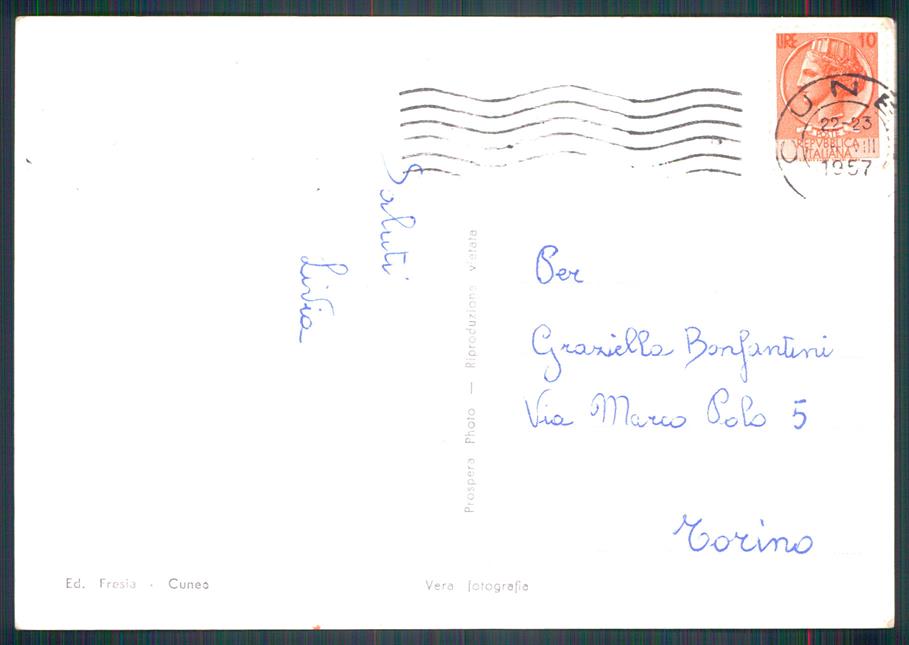 LIRE 10
CUNE
22-23
VIII
1957
POSTE
REPVBBLICA
ITALIANA
Saluti
Livia
Prospera Photo — Riproduzione vietata
Per
Graziella Bonfantini
Via Marco Polo 5
Torino
Ed. Fresia - Cuneo
Vera fotografia